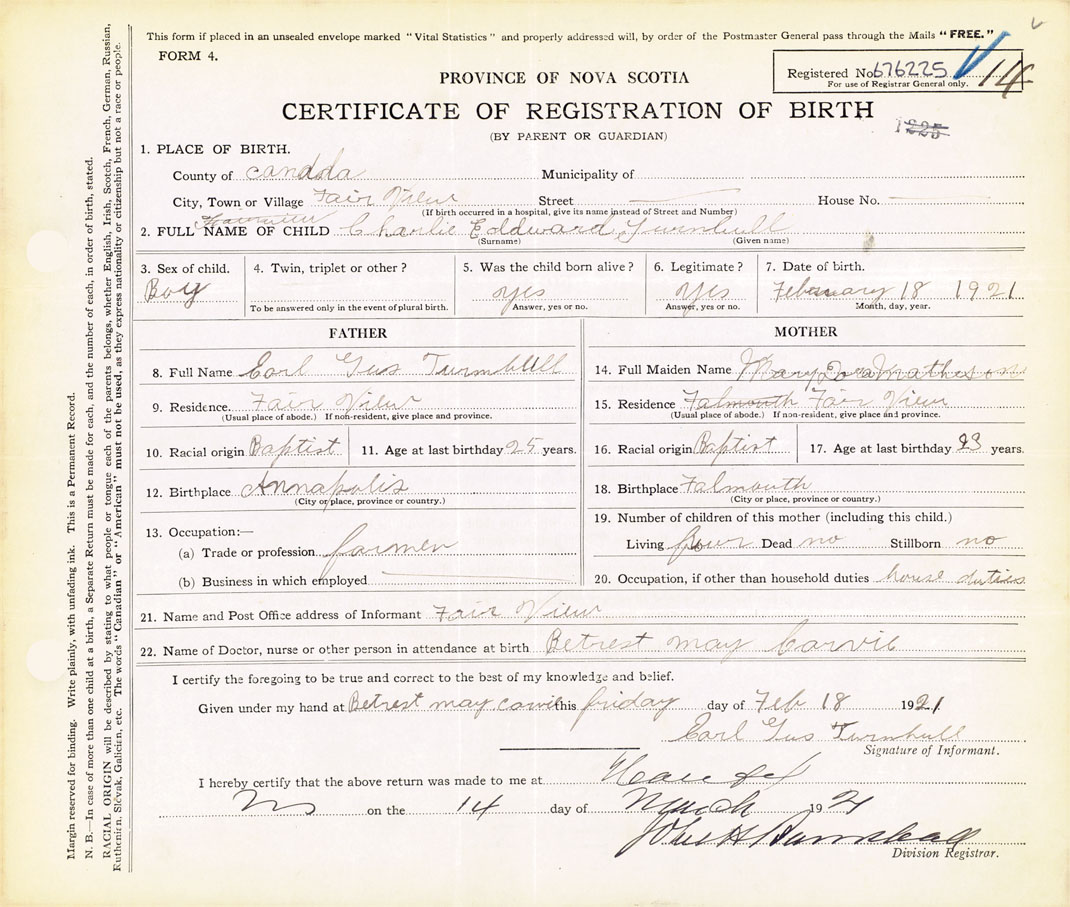 This form if placed in an unsealed envelope marked "Vital Statistics" and properly addressed will, by order of the Postmaster General pass through the Mails "FREE."
FORM 4.
Registered No 676225 14
For use of Registrar General only.
PROVINCE OF NOVA SCOTIA
CERTIFICATE OF REGISTRATION OF BIRTH
1225
(BY PARENT OR GUARDIAN)
1. PLACE OF BIRTH.
County of candda Municipality of
City, Town or Village Fair View Street House No.
(If birth occurred in a hospital, give its name instead of Street and Number)
2. FULL NAME OF CHILD Charlie Eddward Turnbull
(Surname) (Given name)
3. Sex of child. 4. Twin, triplet or other? 5. Was the child born alive? 6. Legitimate? 7. Date of birth.
Boy yes yes February 18 1921
To be answered only in the event of plural birth. Answer, yes or no. Answer, yes or no. Month, day, year.
FATHER
8. Full Name Earl Gus Turnbull
9. Residence. Fair View
(Usual place of abode.) If non-resident, give place and province.
10. Racial origin Baptist 11. Age at last birthday 25 years.
12. Birthplace Annapolis
(City or place, province or country.)
13. Occupation:—
(a) Trade or profession farmer
(b) Business in which employed
MOTHER
14. Full Maiden Name Mary Dora Matheson
15. Residence Falmouth Fair View
(Usual place of abode.) If non-resident, give place and province.
16. Racial origin Baptist 17. Age at last birthday 23 years.
18. Birthplace Falmouth
(City or place, province or country.)
19. Number of children of this mother (including this child.)
Living four Dead no Stillborn no
20. Occupation, if other than household duties house duties
21. Name and Post Office address of Informant Fair View
22. Name of Doctor, nurse or other person in attendance at birth Betrest may Carvil
I certify the foregoing to be true and correct to the best of my knowledge and belief.
Given under my hand at Betrest may this friday day of Feb 18 1921
Earl Gus Turnbull
Signature of Informant.
I hereby certify that the above return was made to me at Halifax
NS on the 14 day of March 1921
John H
Division Registrar.
Margin reserved for binding. Write plainly, with unfading ink. This is a Permanent Record.
N. B.—In case of more than one child at a birth, a Separate Return must be made for each, and the number of each, in order of birth, stated.
RACIAL ORIGIN will be described by stating to what people or tongue each of the parents belongs, whether English, Irish, Scotch, French, German, Russian,
Ruthenien, Slovak, Galicien, etc. The words "Canadian" or "American" must not be used, as they express nationality or citizenship but not a race or people.